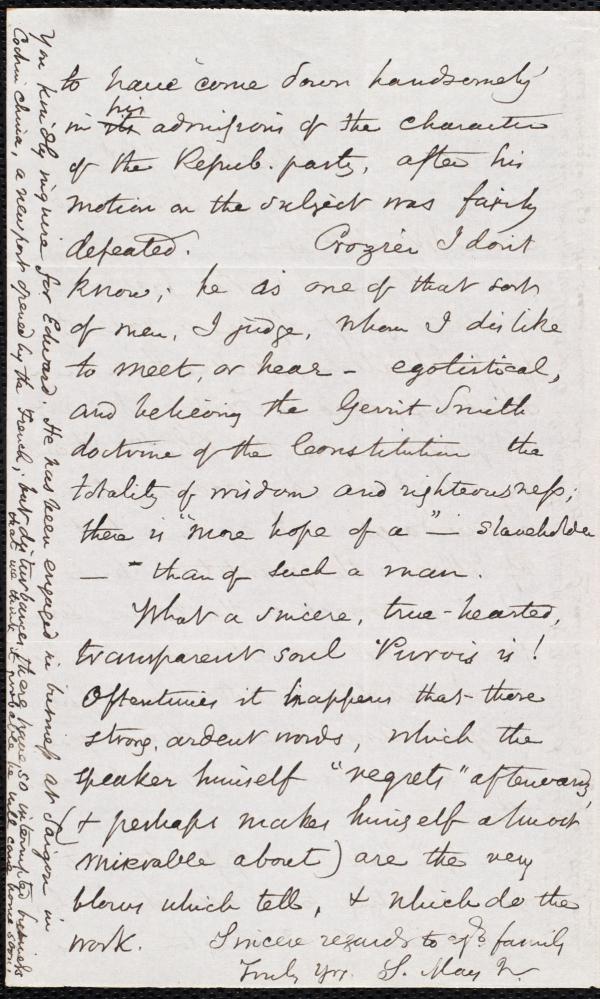 to have come down handsomely
in its his admissions of the character
of the Repub. party, after his
motion on the subject was fairly
defeated. Crozier I don't
know; he is one of that sort
of men, I judge, whom I dislike
to meet, or hear - egotistical,
and believing the Gerrit Smith
doctrine of the Constitution the
totality of wisdom and righteousness;
there is "more hope of a" — slaveholder
— "than of such a man.
What a sincere, true-hearted,
transparent soul Purvis is!
Oftentimes it happens that there
strong, ardent words, which the
speaker himself "regrets" afterwards,
(& perhaps makes himself almost
miserable about) are the very
blows which tell, & which do the
work. Sincere regards to yr. family
Truly Yrs. S. May Jr.
You kindly inquire for Edward. He has been engaged in business at Saigon in
Cochin China, a new port opened by the French; but disturbances there have so interrupted business
that we think it probable he will come home soon.